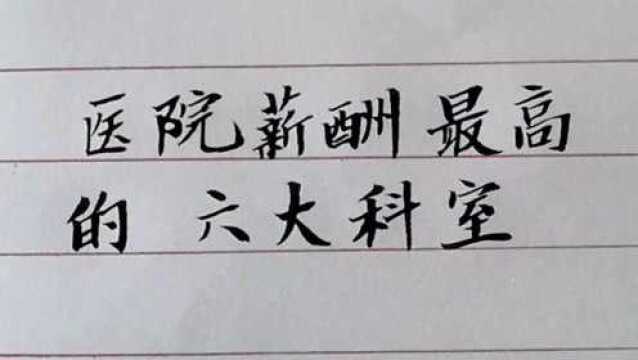 医院薪酬最高
的六大科室